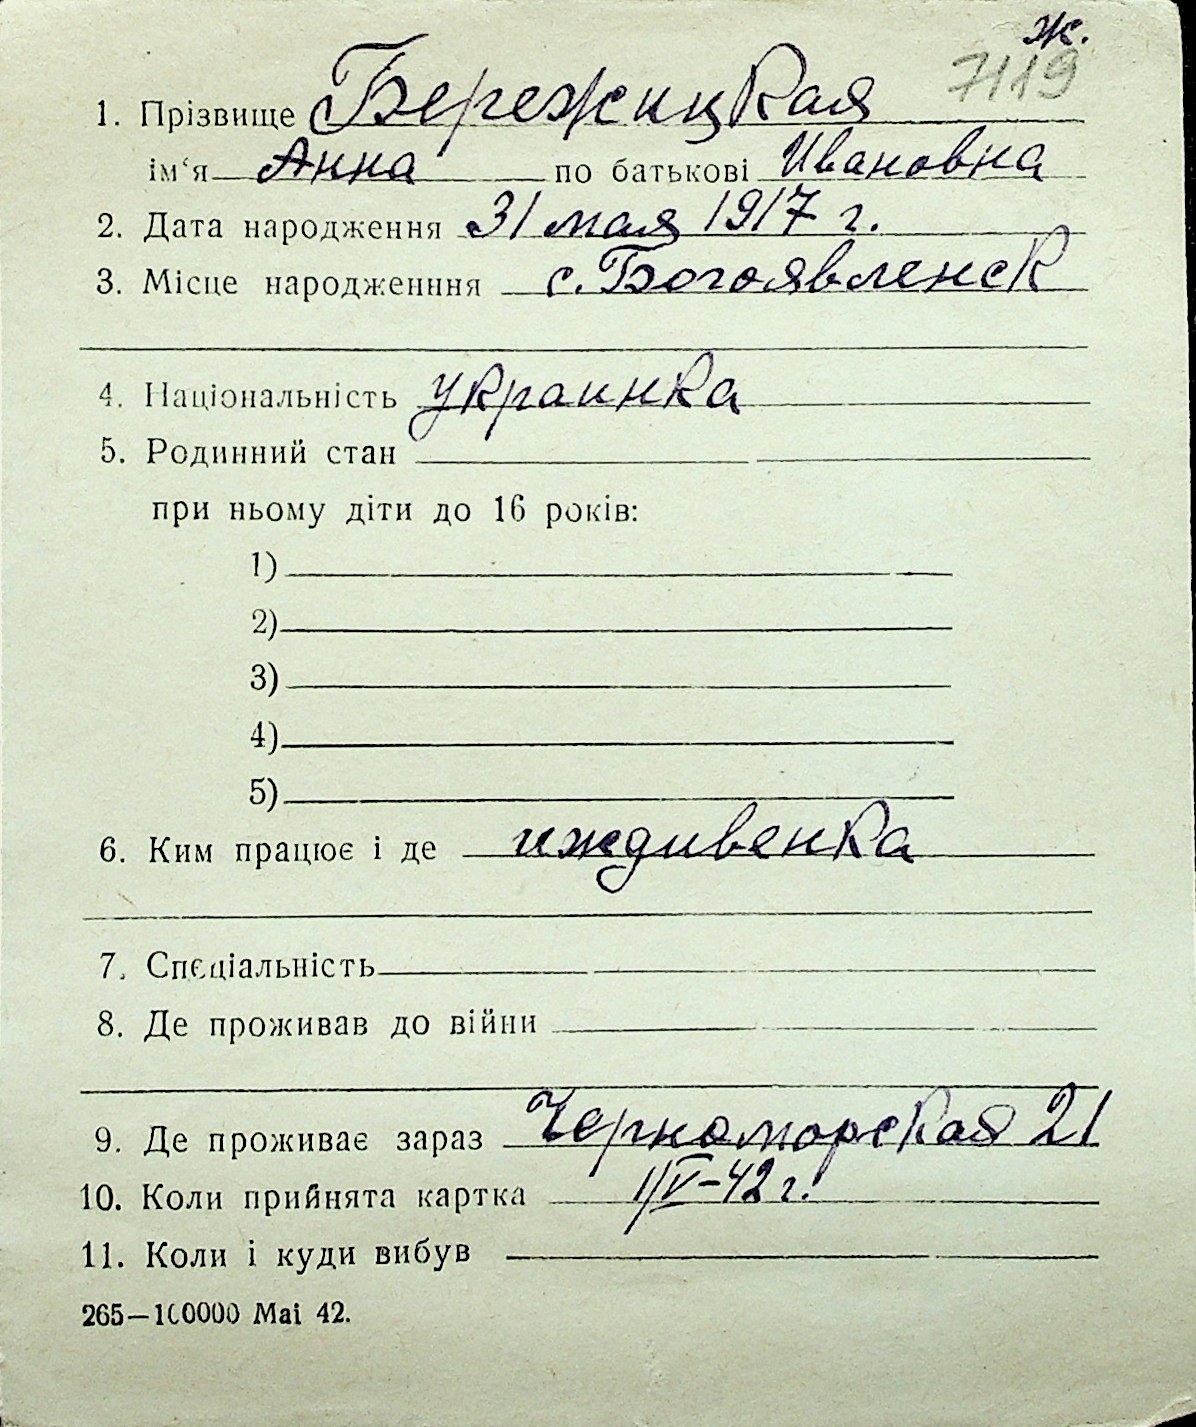 ж.
7119
1. Прізвище Бережицкая
ім‘я Анна по батькові Ивановна
2. Дата народження 31 мая 1917 г.
3. Місце народженння с. Богоявленск
4. Національність украинка
5. Родинний стан
при ньому діти до 16 років:
1)
2)
3)
4)
5)
6. Ким працює і де иждивенка
7. Спеціальність
8. Де проживав до війни
9. Де проживає зараз Черноморская 21
10. Коли прийнята картка 1/V–42 г.
11. Коли і куди вибув
265—100000 Mai 42.